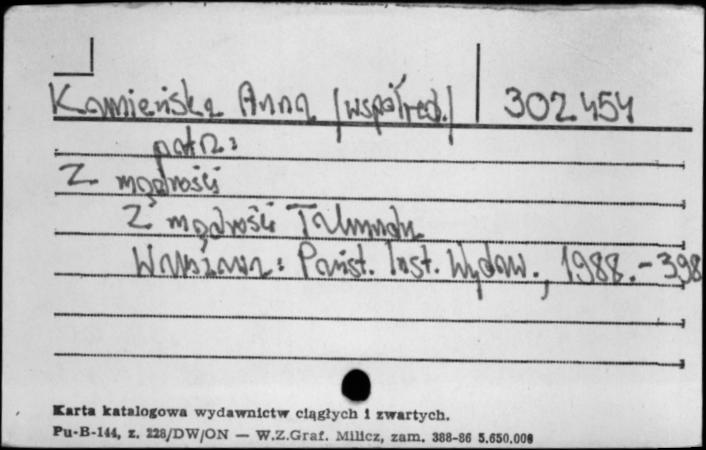 Kamieńska Anna (współred.) 302.454
patrz:
Z mądrości
Z mądrości Talmudu
Warszawa: Państ. Inst. Wydaw., 1988. - 398
Karta katalogowa wydawnictw ciągłych i zwartych.
Pu-B-144, z. 228/DW/ON — W.Z.Graf. Milicz, zam. 388-86 5.650.000